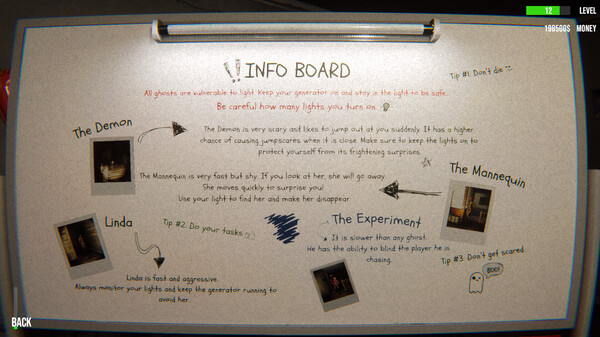 12 LEVEL
198500$ MONEY
!! INFO BOARD
Tip #1. Don't die
All ghosts are vulnerable to light. Keep your generator on and stay in the light to be safe.
Be careful how many lights you turn on
The Demon
The Demon is very scary and likes to jump out at you suddenly. It has a higher
chance of causing jumpscares when it is close. Make sure to keep the lights on to
protect yourself from its frightening surprises.
The Mannequin
The Mannequin is very fast but shy. If you look at her, she will go away.
She moves quickly to surprise you!
Use your light to find her and make her disappear
Linda
Tip #2. Do your tasks
The Experiment
It is slower than any ghost.
He has the ability to blind the player he is
chasing.
Tip #3. Don't get scared
BOO!
Linda is fast and aggressive.
Always monitor your lights and keep the generator running to
avoid her.
BACK